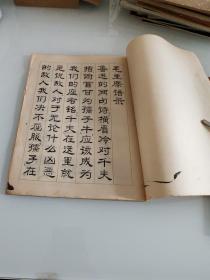 毛主席语录
鲁迅的两句诗横眉冷对千夫
指俯首甘为孺子牛应该成为
我们的座右铭千夫在这里就
是说敌人对于无论什么凶恶
的敌人我们决不屈服孺子在